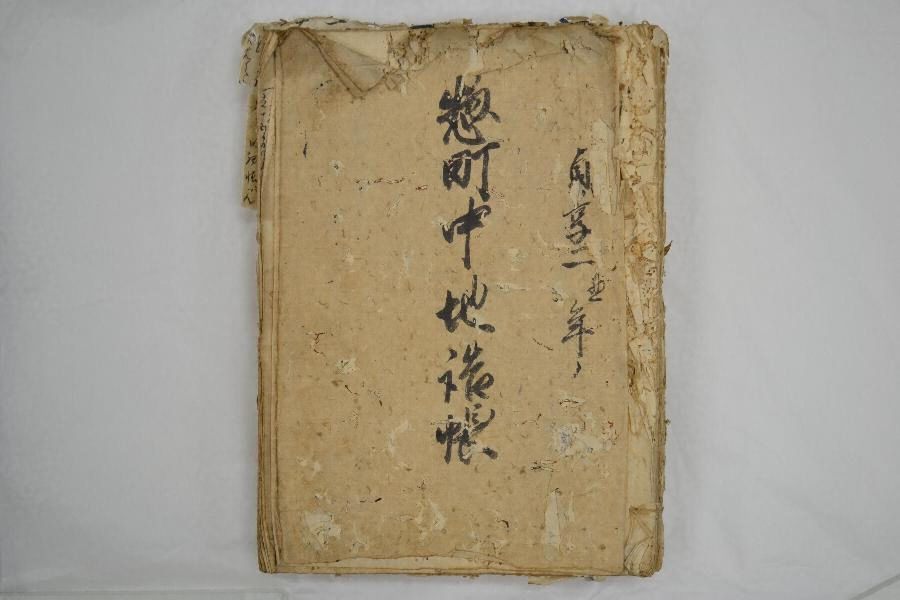 貞享二丑年
惣町中地詰帳